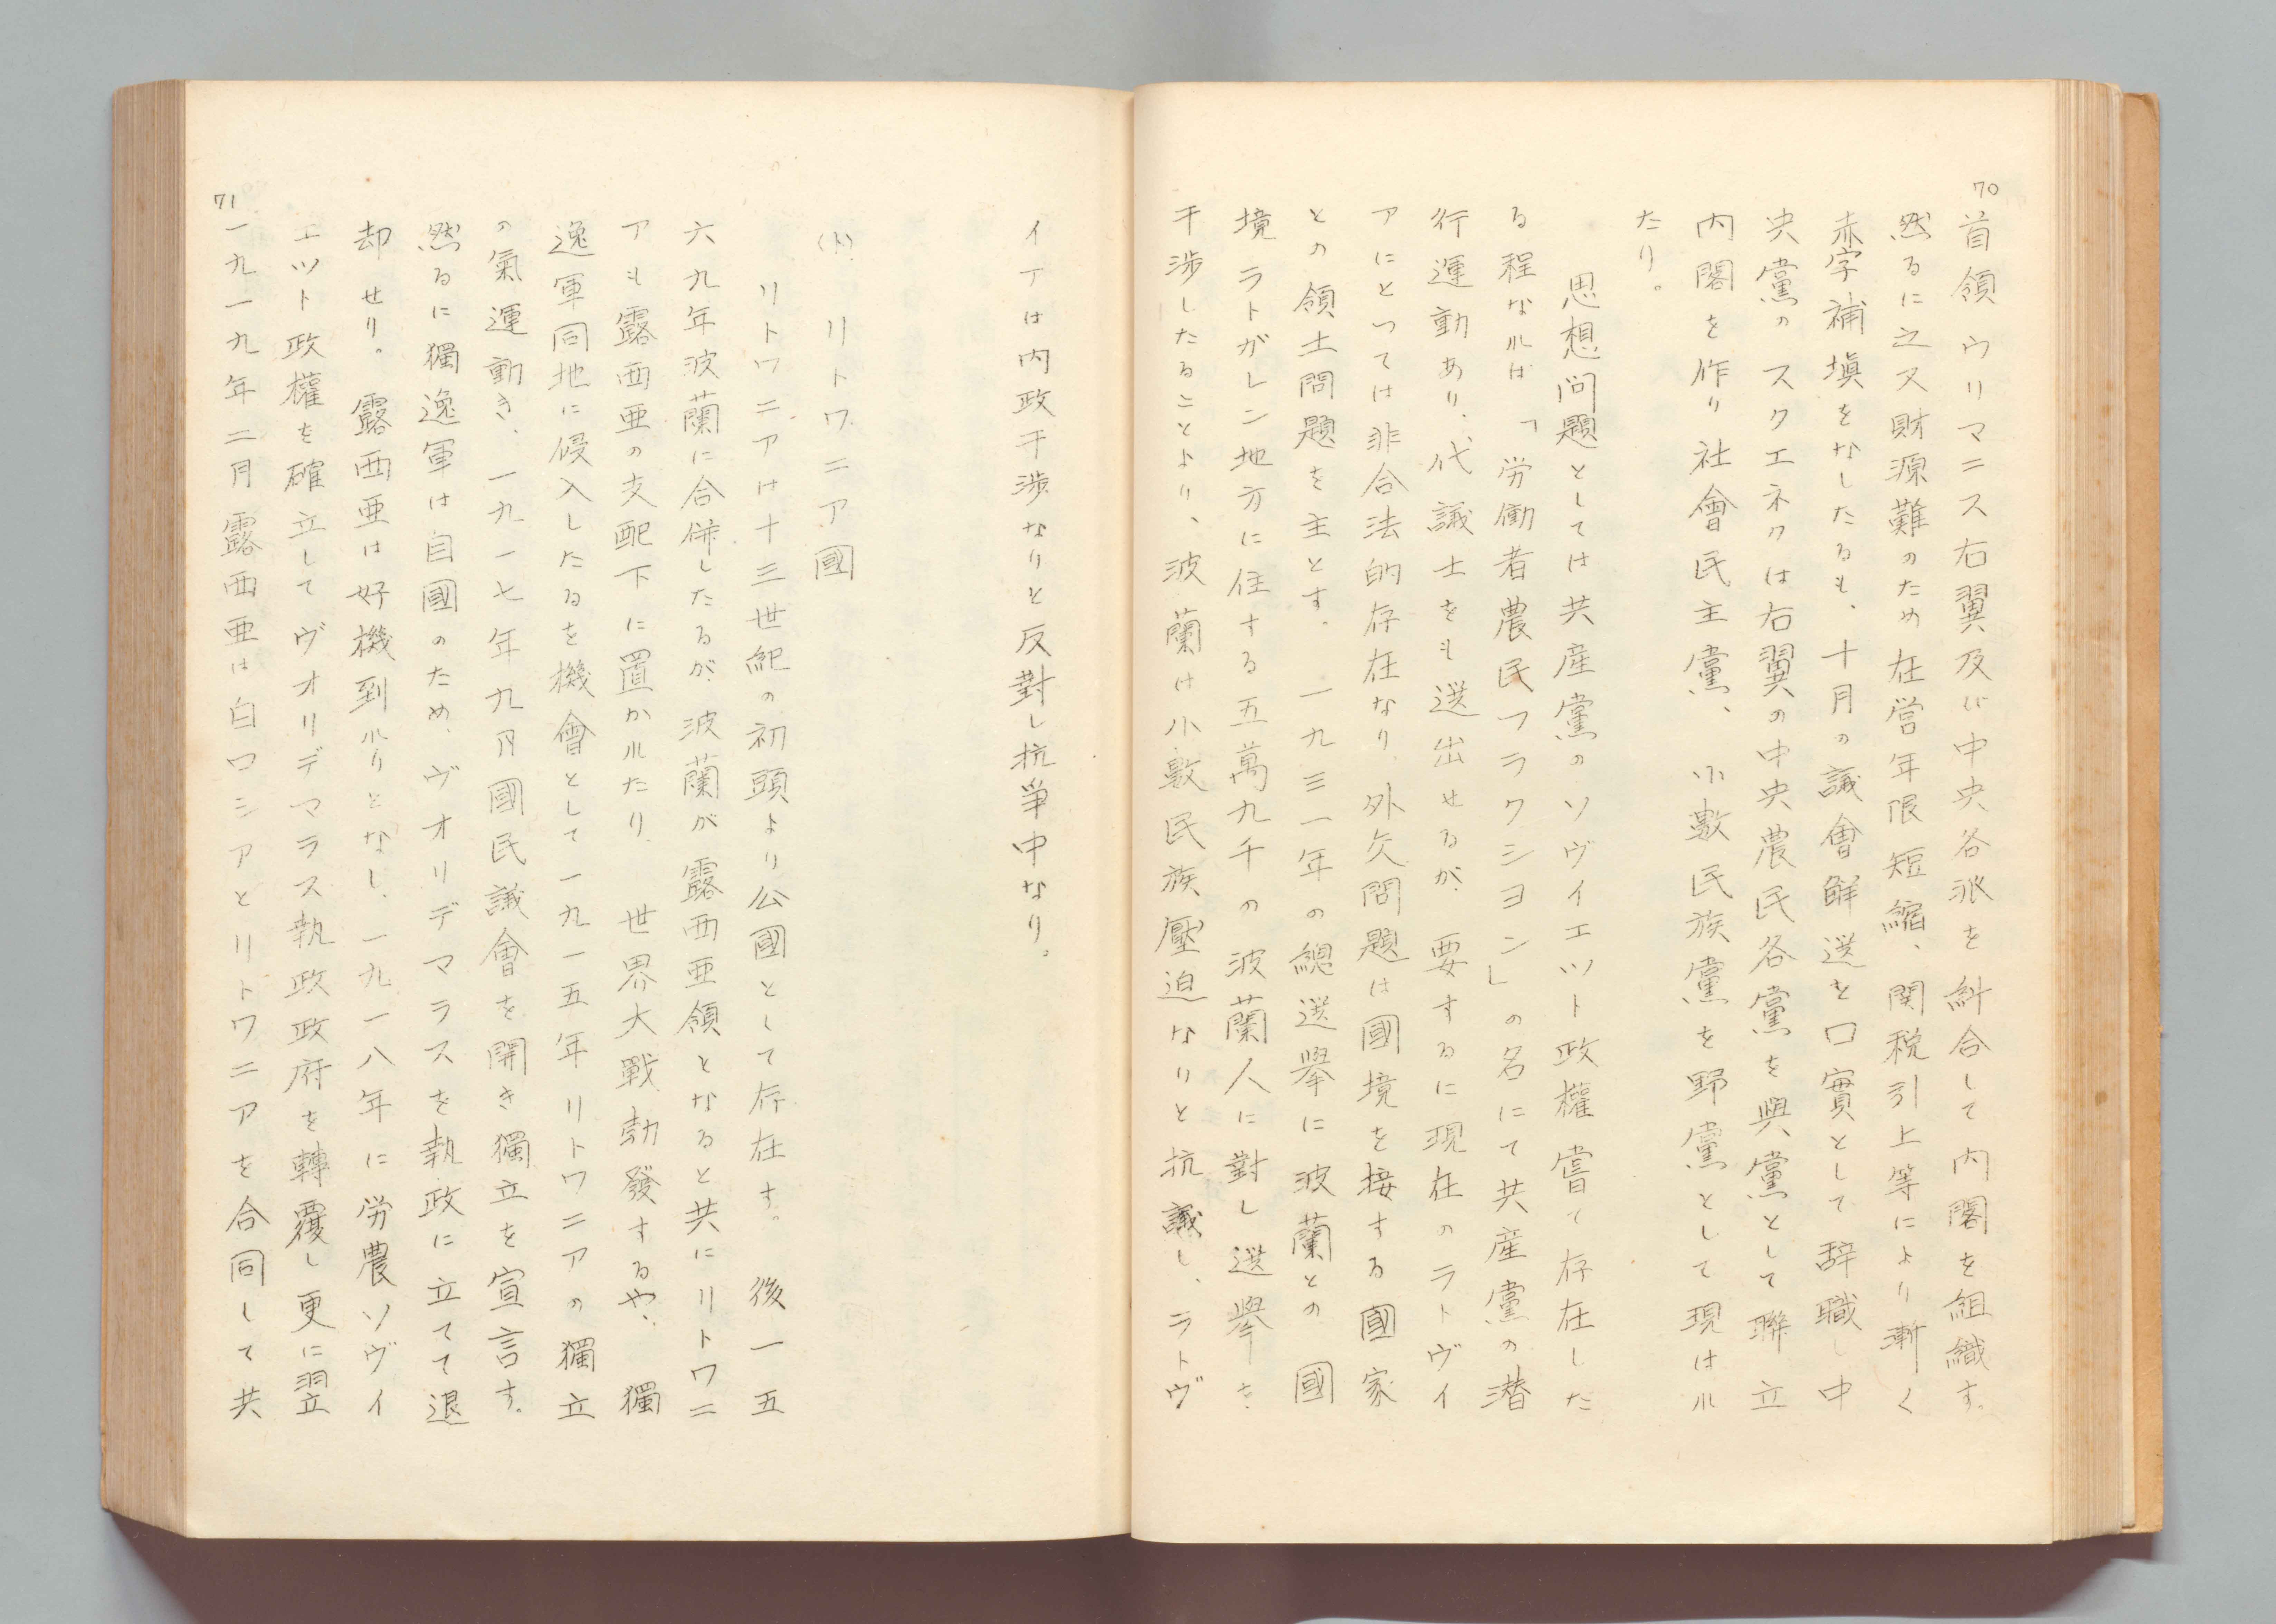 70
首領ウリマニス右翼及び中央各派を糾合して内閣を組織す。
然るに之又財源難のため在営年限短縮、関税引上等により漸く
赤字補塡をなしたるも、十月の議會解選を口實として辞職し中
央黨のスクエネクは右翼の中央農民各黨を與黨として聯立
内閣を作り社會民主黨、小數民族黨を野黨として現はれ
たり。
思想问題としては共産黨のソヴイエツト政權嘗て存在した
る程なれば「労働者農民フラクシヨン」の名にて共産黨の潜
行運動あり、代議士をも選出せるが、要するに現在のラトヴイ
アにとつては非合法的存在なり 外交問題は國境を接する國家
との領土問題を主とす。 一九三一年の總選擧に波蘭との國
境ラトガレン地方に住する五萬九千の波蘭人に對し選擧を
干渉したることより、波蘭は小數民族壓迫なりと抗議し、ラトヴ
イアは内政干渉なりと反對し抗爭中なり。
(ト) リトワニア國
リトワニアは十三世紀の初頭より公國として存在す。 後一五
六九年波蘭に合併したるが、波蘭が露西亜領となると共にリトワニ
アも露西亜の支配下に置かれたり 世界大戰勃發するや、獨
逸軍同地に侵入したるを機會として一九一五年リトワニアの獨立
の氣運動き、一九一七年九月國民議會を開き獨立を宣言す。
然るに獨逸軍は自國のため、ヴオリデマラスを執政に立てて退
却せり。 露西亜は好機到れりとなし、一九一八年に労農ソヴイ
エツト政權を確立してヴオリデマラス執政政府を轉覆し更に翌
一九一九年二月露西亜は白ロシアとリトワニアを合同して共
71